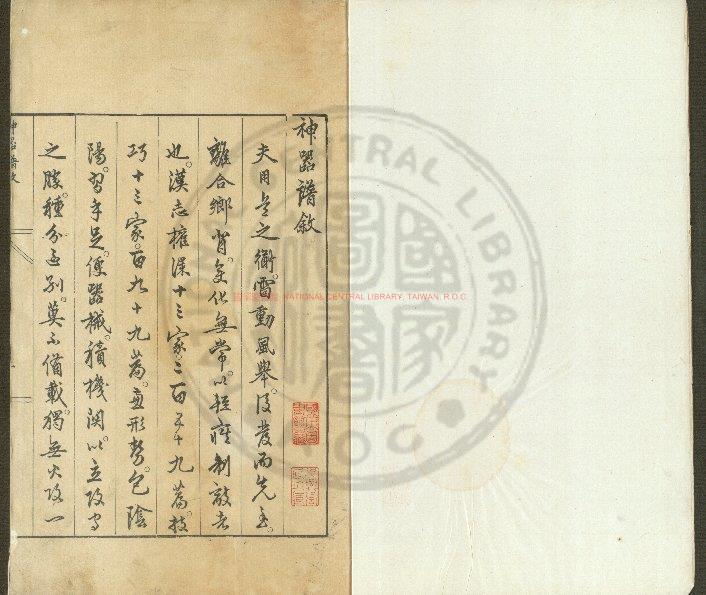 神器譜敘
夫用兵之術。雷動風舉。後發而先至。
離合鄉背。變化無常。以輕疾制敵者
也。漢志權謀十三家。二百五十九篇。技
巧十三家。百九十九篇。兼形勢。包陰
陽。習手足。便器械。積機関。以立攻守
之勝。種分区別。莫不備載。獨無火攻一
神器譜敘
NATIONAL CENTRAL LIBRARY, TAIWAN, R.O.C.
CENTRAL LIBRARY
ROC